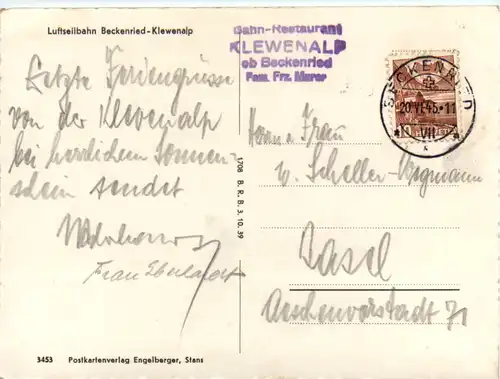 Luftseilbahn Beckenried-Klewenalp
Letzte Feriengrüsse
von der Klevenalp
bei herrlichem Sonnen-
schein sendet
Frau Eberhardt
3453 Postkartenverlag Engelberger, Stans
1708 B. R. B. 3. 10. 39
Bahn-Restaurant
KLEWENALP
ob Beckenried
Fam. Frz. Murer
BECKENRIED
20.VI.45-11
VII
Herrn u. Frau
W. Scheller-Wegmann
Basel
Aeschenvorstadt 71